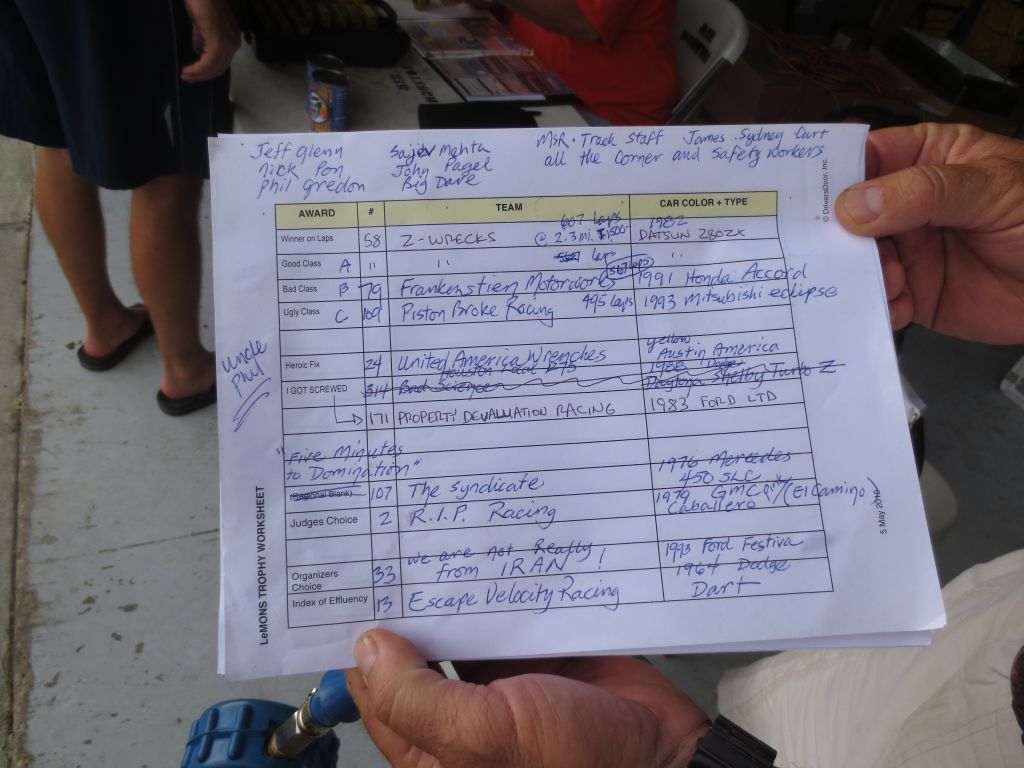 Jeff Glenn Sajev Mehta MSR · Track Staff James Sydney Curt
Nick Pon John Pagel all the Corner and Safety workers
Phil Gredon Big Dave
© DriversDoor, Inc.
AWARD # TEAM CAR COLOR + TYPE
Winner on Laps 58 Z-WRECKS 607 laps @ 2.3 mi. 1982 DATSUN 280ZX
Good Class A " " laps "
Bad Class B 79 Frankenstien Motorworks 567 laps 1991 Honda Accord
Ugly Class C 109 Piston Broke Racing 495 laps 1993 Mitsubishi eclipse
Uncle Phil
Heroic Fix 24 United America Wrenches yellow Austin America
I GOT SCREWED 314 Bad Science 1988 Dodge Daytona Shelby Turbo Z
171 PROPERTY DEVALUATION RACING 1983 FORD LTD
"Five Minutes
to Domination"
(Regional Blank) 107 The Syndicate 1976 Mercedes 450 SLC
Judges Choice 2 R.I.P. Racing 1979 GMC Caballero (El Camino)
Organizers Choice 33 We are Not Really from IRAN! 1993 Ford Festiva
Index of Effluency 13 Escape Velocity Racing 1964 Dodge Dart
LeMONS TROPHY WORKSHEET
5 May 2010